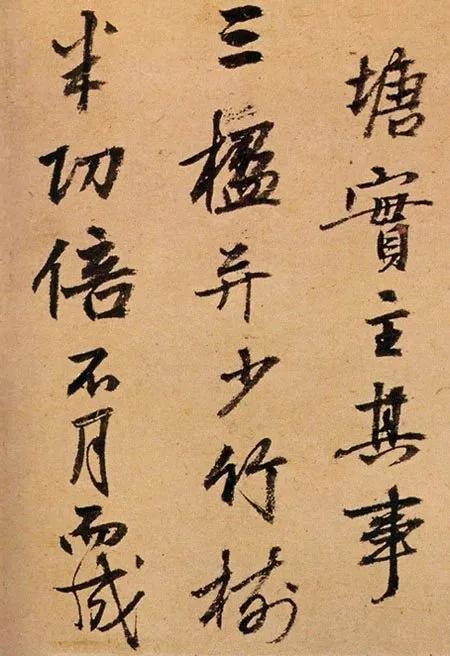 塘實主其事
三楹并少竹樹
半功倍不月而成